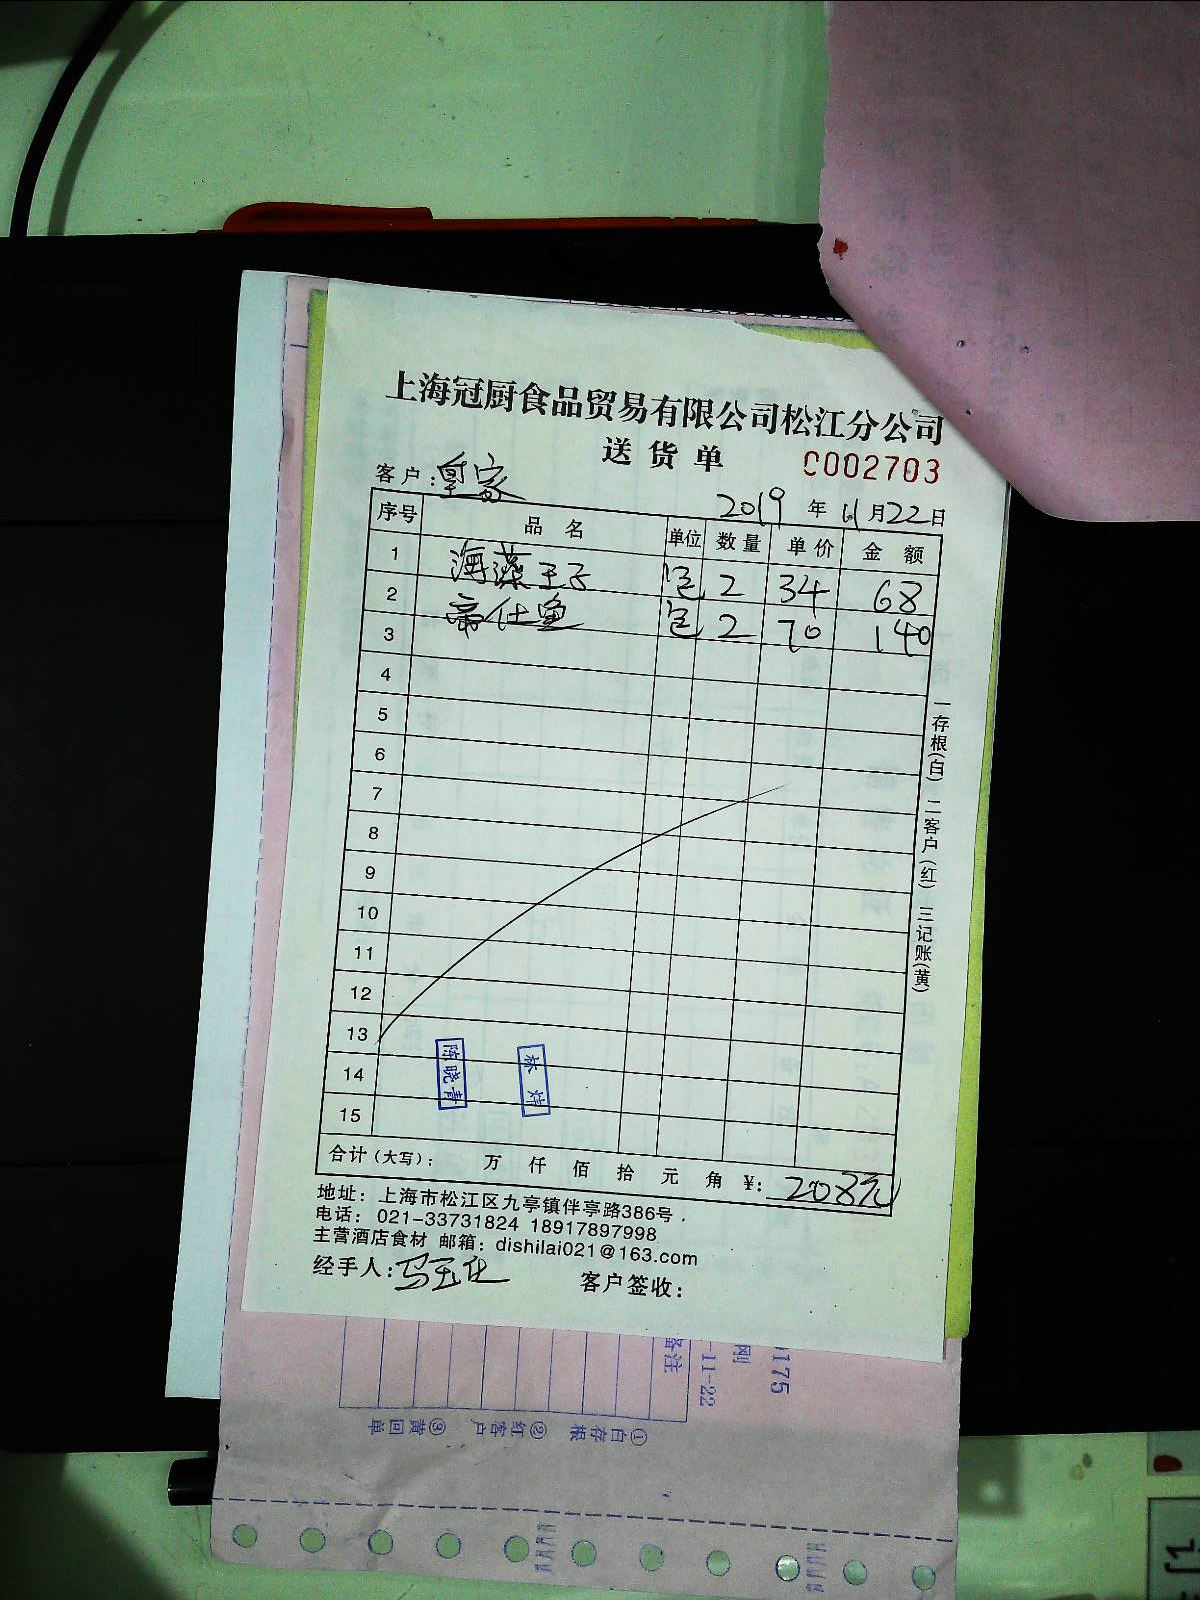 上海冠厨食品贸易有限公司松江分公司
送货单
C002703
客户:皇家
2019 年 11 月 22 日
序号 品名 单位 数量 单价 金额
1 海藻王子 包 2 34 68
2 希仕鱼 包 2 70 140
3
4
5
6
7
8
9
10
11
12
13
14
15
陈晓青
林
合计(大写): 万 仟 佰 拾 元 角 ¥: 208元
地址: 上海市松江区九亭镇伴亭路386号
电话: 021-33731824 18917897998
主营酒店食材 邮箱: dishilai021@163.com
经手人:马玉仕 客户签收:
一存根(白) 二客户(红) 三记账(黄)
备注
-11-22
刚
0175
①白存根 ②红客户 ③黄回单